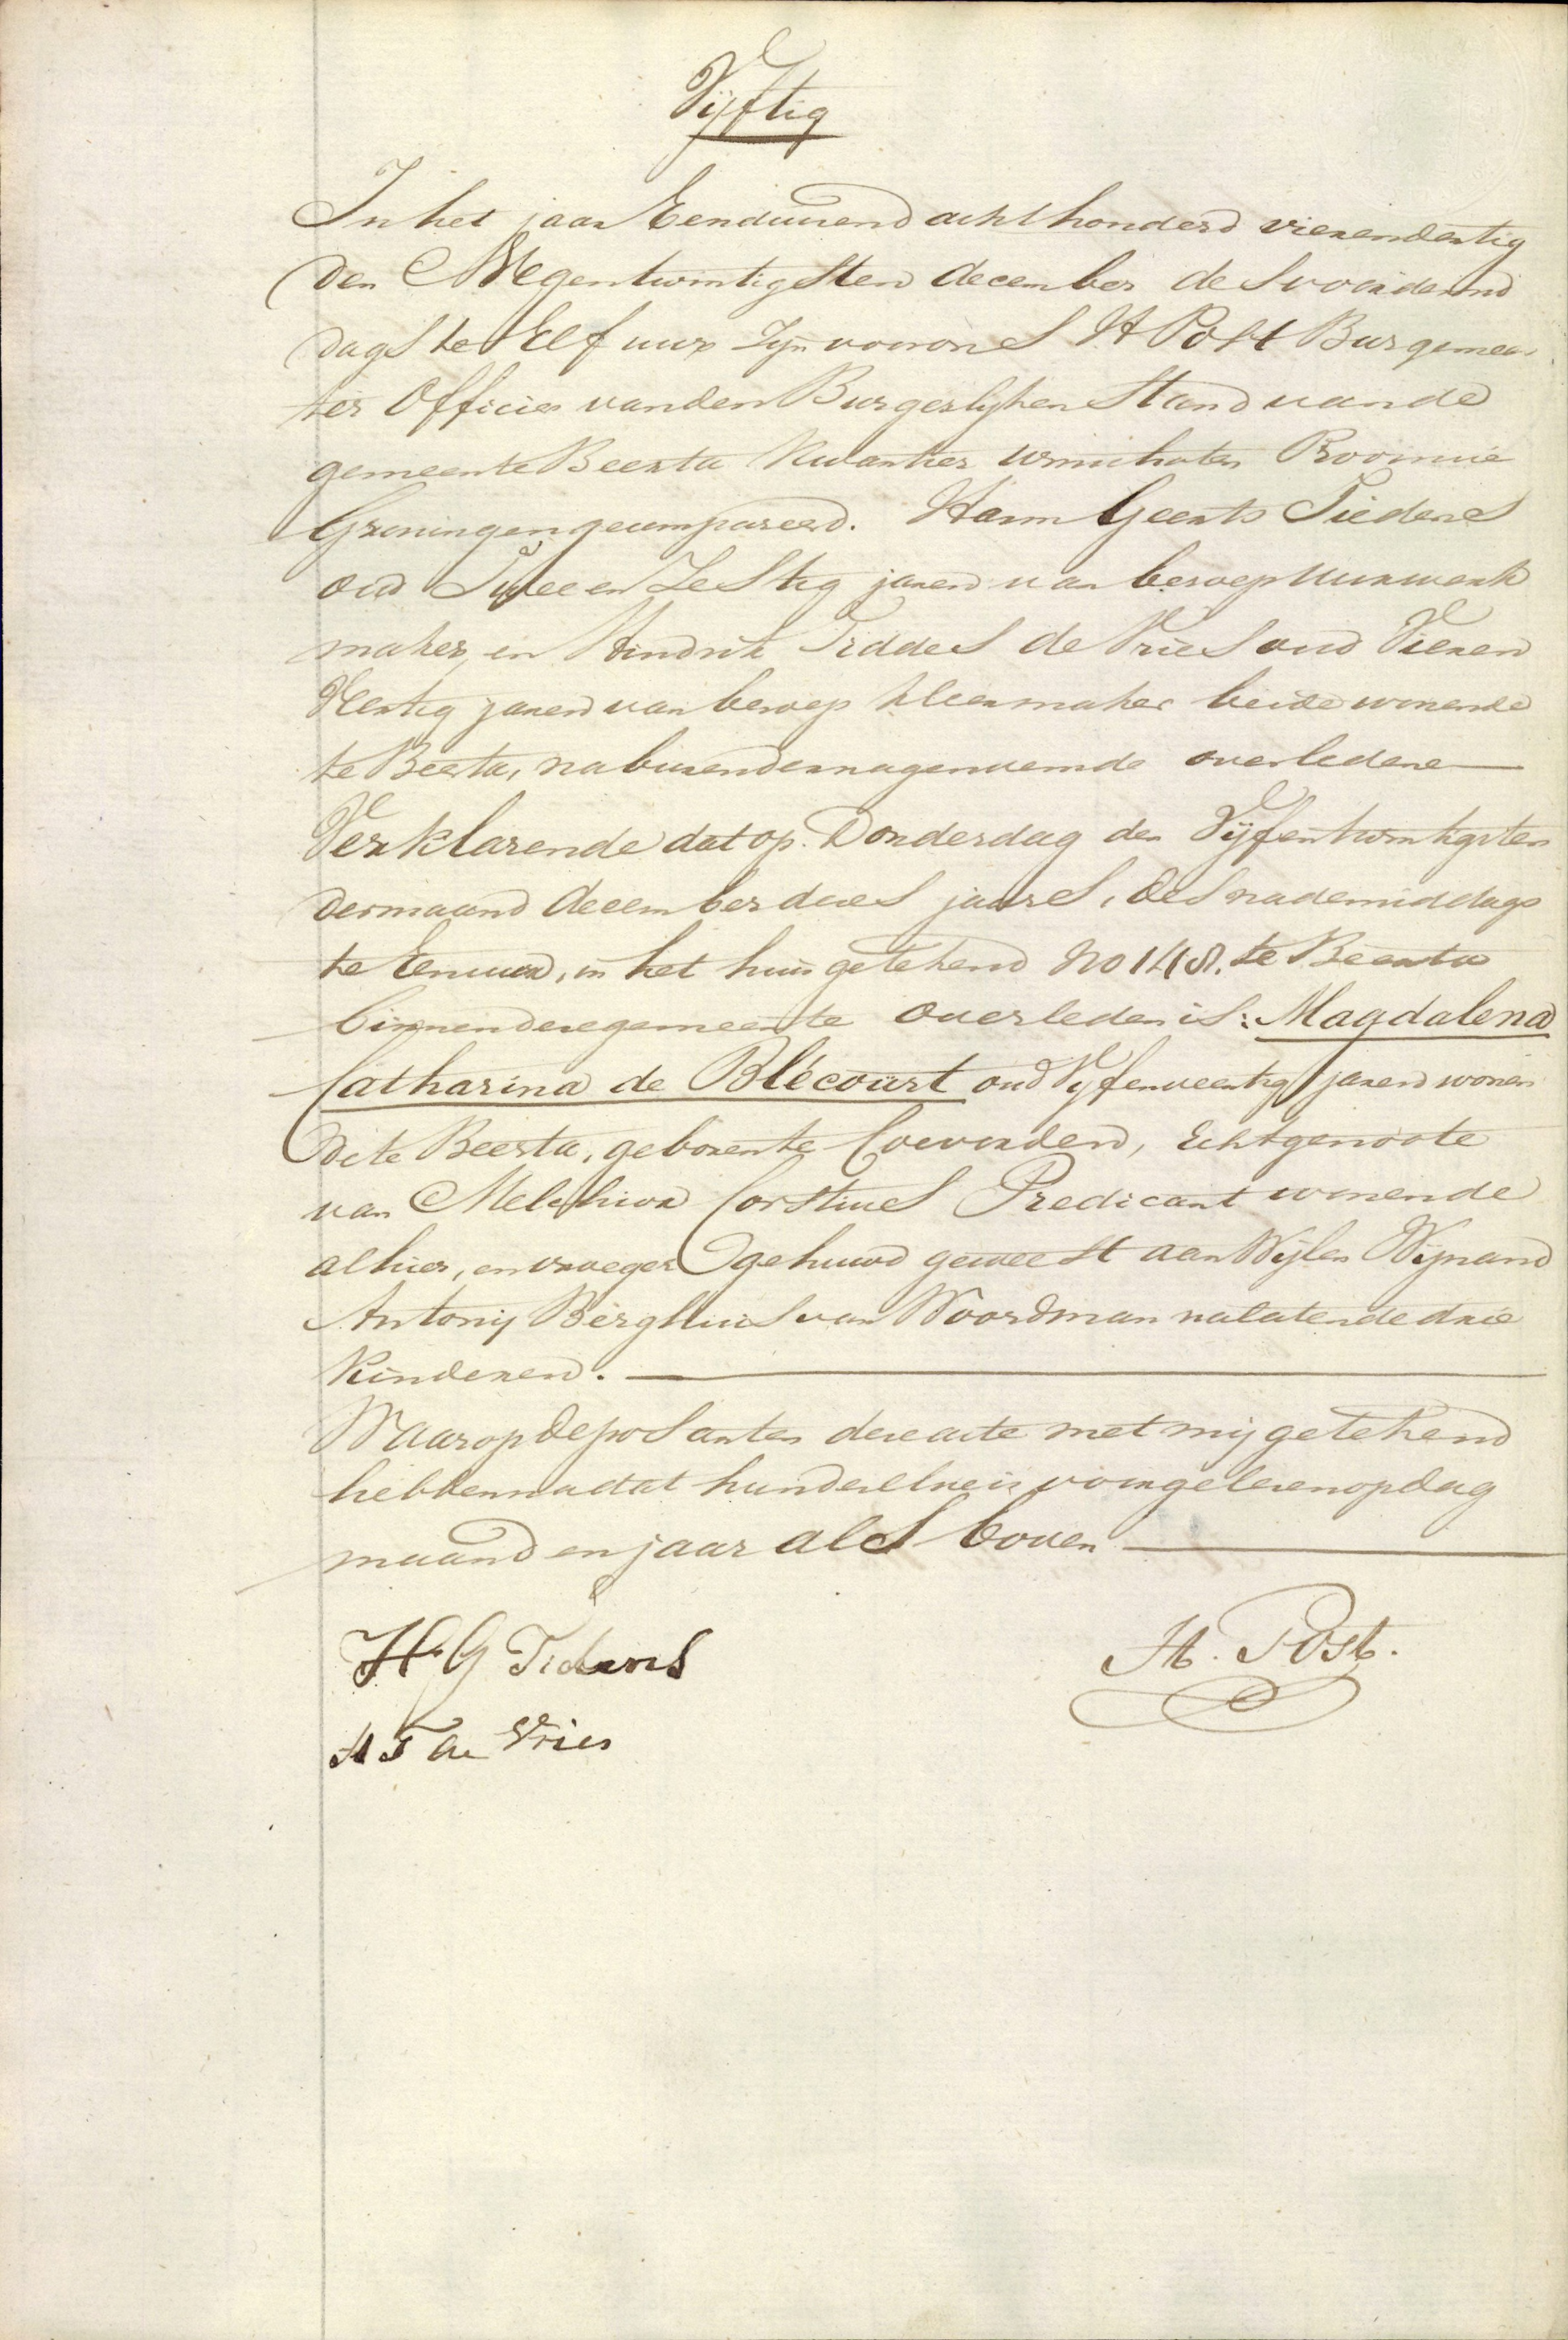 Vijftig
In het jaar Eenduizend achthonderd vierendertig
den Negentwintigsten december des voormid
dags te Elf uur Zijn voor ons H Post Burgemees
ter Officier van den Burgerlyken Stand van de
gemeente Beerta Kwartier Winschoten Provincie
Groningen gecompareerd. Harm Geerts Tiedens
oud Twee en Zestig jaren van beroep Uurwerk
maker, en Hindrik Tiddes de Vries oud Vieren
Veertig jaren van beroep kleermaker beide wonende
te Beerta, naburen der nagenoemde overledene
Verklarende dat op Donderdag den Vijfentwintigsten
der maand december dezes jaars, des nademiddags
te Een uur, in het huis getekend No 148. te Beerta
binnen deze gemeente overleden is: Magdalena
Catharina de Blécourt oud Vyfenveertig jaren wonen
de te Beerta, geboren te Coevorden, Echtgenoote
van Melchior Corstius Predicant wonende
alhier, en vroeger gehuwd geweest aan Wijlen Wijnand
Antony Berghuis van Woordman nalatende drie
Kinderen.
Waarop deposanten deze acte met mij getekend
hebben na dat hun dezelve is voorgelezen op dag
maand en jaar als boven
H G Tidens
H. Post.
H T de Vries